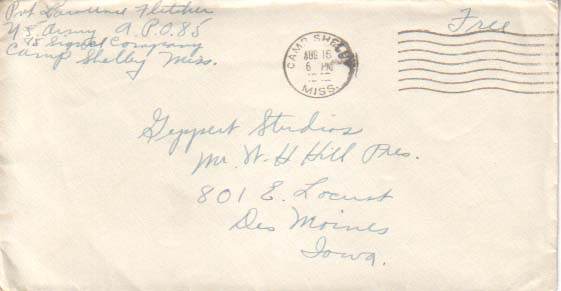 Pvt Lawrence Fletcher
U S Army A.P.O. 85
85 Signal Company
Camp Shelby Miss.
Free
CAMP SHELBY
AUG 16
6 PM
MISS.
Geppert Studios
Mr. W. H Hill Pres.
801 E. Locust
Des Moines
Iowa.